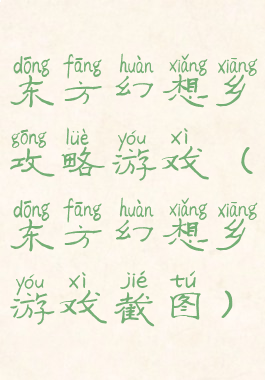 dōng fāng huàn xiǎng xiāng
东方幻想乡
gōng lüè yóu xì
攻略游戏（
dōng fāng huàn xiǎng xiāng
东方幻想乡
yóu xì jié tú
游戏截图）